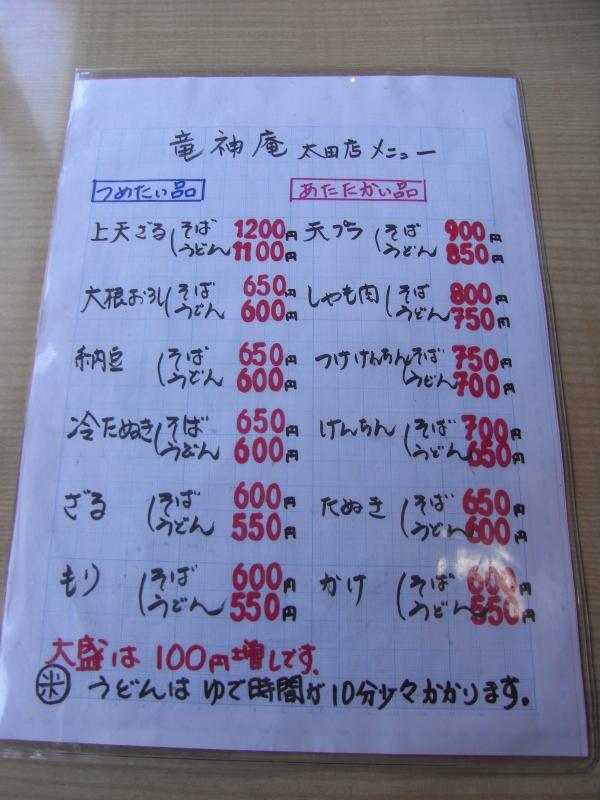 竜神庵 太田店 メニュー
つめたい品
上天ざる そば 1200円
うどん 1100円
大根おろし そば 650円
うどん 600円
納豆 そば 650円
うどん 600円
冷たぬき そば 650円
うどん 600円
ざる そば 600円
うどん 550円
もり そば 600円
うどん 550円
あたたかい品
天プラ そば 900円
うどん 850円
しゃも肉 そば 800円
うどん 750円
つけけんちん そば 750円
うどん 700円
けんちん そば 700円
うどん 650円
たぬき そば 650円
うどん 600円
かけ そば 600円
うどん 550円
大盛は100円増しです。
米 うどんは ゆで時間が10分少々かかります。